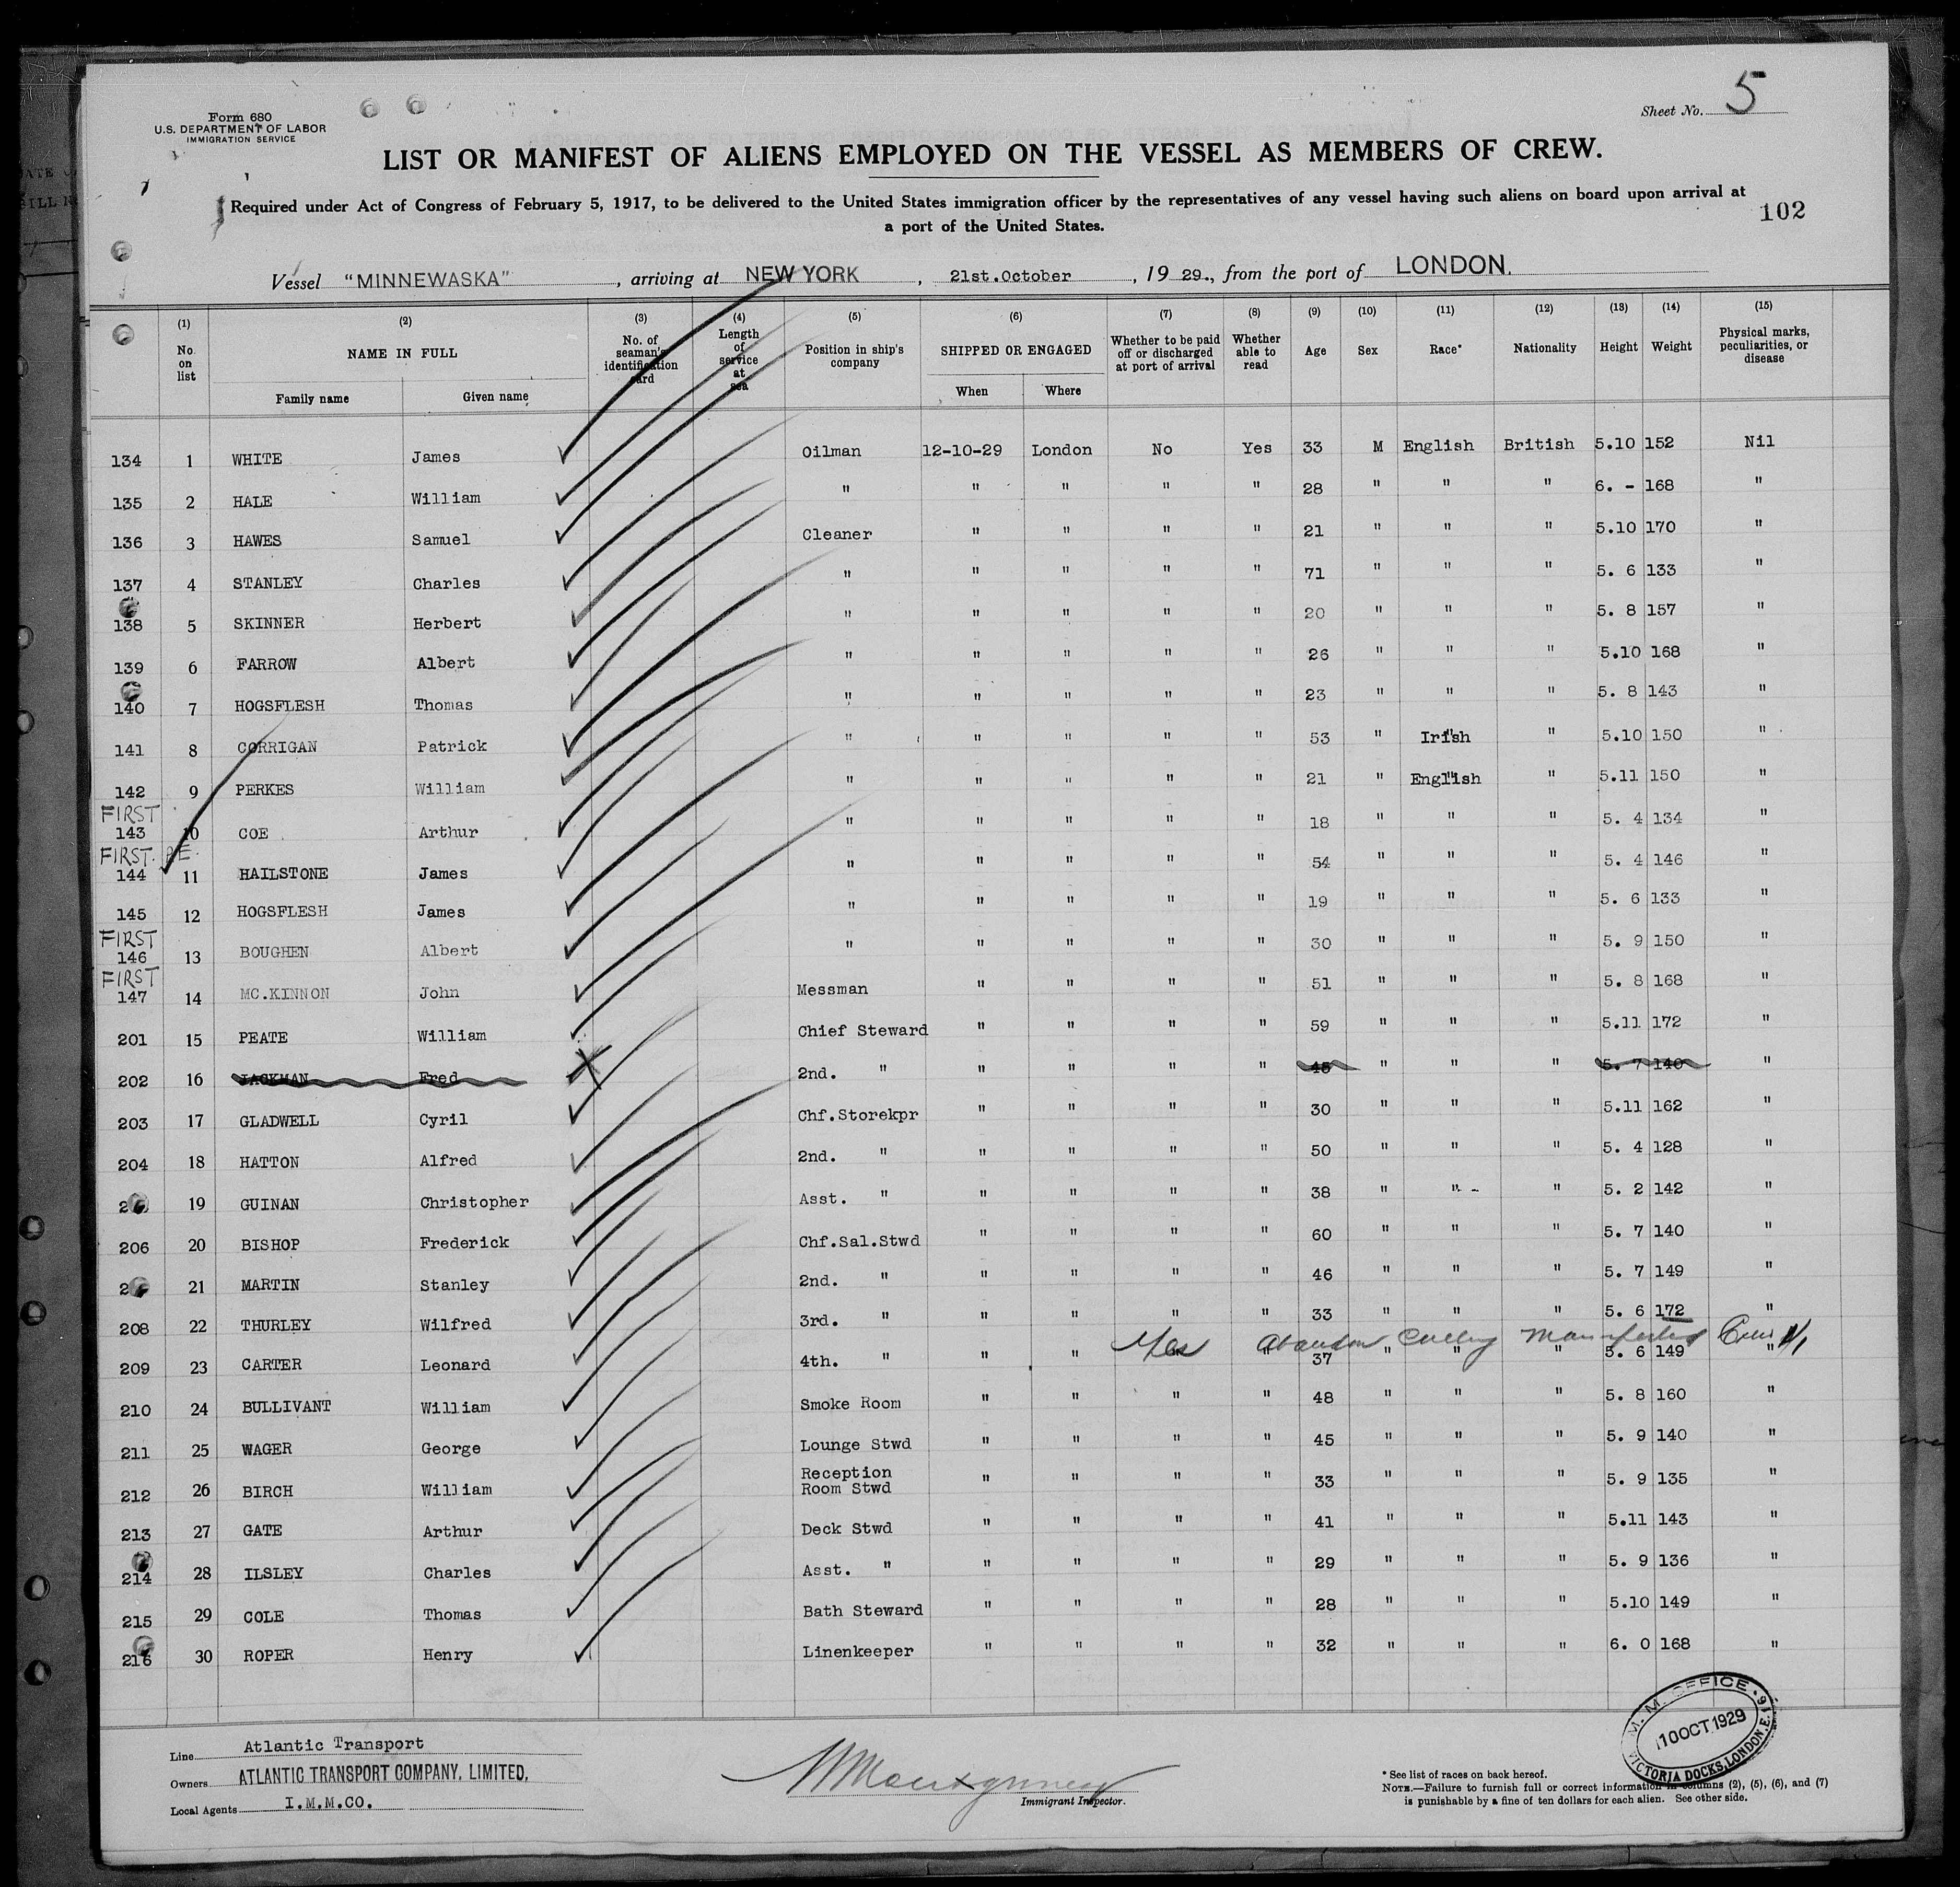 Form 680
U.S. DEPARTMENT OF LABOR
IMMIGRATION SERVICE
Sheet No. 5
LIST OR MANIFEST OF ALIENS EMPLOYED ON THE VESSEL AS MEMBERS OF CREW.
Required under Act of Congress of February 5, 1917, to be delivered to the United States immigration officer by the representatives of any vessel having such aliens on board upon arrival at
a port of the United States.
102
Vessel "MINNEWASKA", arriving at NEW YORK, 21st.October, 19 29., from the port of LONDON.
(1) (2) (3) (4) (5) (6) (7) (8) (9) (10) (11) (12) (13) (14) (15)
No. on list NAME IN FULL Family name Given name No. of seaman's identification card Length of service at sea Position in ship's company SHIPPED OR ENGAGED When Where Whether to be paid off or discharged at port of arrival Whether able to read Age Sex Race* Nationality Height Weight Physical marks, peculiarities, or disease
134 1 WHITE James Oilman 12-10-29 London No Yes 33 M English British 5.10 152 Nil
135 2 HALE William " " " " " 28 " " " 6. - 168 "
136 3 HAWES Samuel Cleaner " " " " 21 " " " 5.10 170 "
137 4 STANLEY Charles " " " " " 71 " " " 5. 6 133 "
138 5 SKINNER Herbert " " " " " 20 " " " 5. 8 157 "
139 6 FARROW Albert " " " " " 26 " " " 5.10 168 "
140 7 HOGSFLESH Thomas " " " " " 23 " " " 5. 8 143 "
141 8 CORRIGAN Patrick " " " " " 53 " Irish " 5.10 150 "
142 9 PERKES William " " " " " 21 " English " 5.11 150 "
FIRST
143 10 COE Arthur " " " " " 18 " " " 5. 4 134 "
FIRST.
144 11 HAILSTONE James " " " " " 54 " " " 5. 4 146 "
145 12 HOGSFLESH James " " " " " 19 " " " 5. 6 133 "
FIRST
146 13 BOUGHEN Albert " " " " " 30 " " " 5. 9 150 "
FIRST
147 14 MC.KINNON John Messman " " " " 51 " " " 5. 8 168 "
201 15 PEATE William Chief Steward " " " " 59 " " " 5.11 172 "
202 16 JACKMAN Fred 2nd. " " " " " 45 " " " 5. 7 140 "
203 17 GLADWELL Cyril Chf.Storekpr " " " " 30 " " " 5.11 162 "
204 18 HATTON Alfred 2nd. " " " " " 50 " " " 5. 4 128 "
19 GUINAN Christopher Asst. " " " " " 38 " " " 5. 2 142 "
206 20 BISHOP Frederick Chf.Sal.Stwd " " " " 60 " " " 5. 7 140 "
21 MARTIN Stanley 2nd. " " " " " 46 " " " 5. 7 149 "
208 22 THURLEY Wilfred 3rd. " " " " " 33 " " " 5. 6 172 "
209 23 CARTER Leonard 4th. " " " Yes " 37 " " " 5. 6 149 "
210 24 BULLIVANT William Smoke Room " " " " 48 " " " 5. 8 160 "
211 25 WAGER George Lounge Stwd " " " " 45 " " " 5. 9 140 "
212 26 BIRCH William Reception Room Stwd " " " " 33 " " " 5. 9 135 "
213 27 GATE Arthur Deck Stwd " " " " 41 " " " 5.11 143 "
214 28 ILSLEY Charles Asst. " " " " " 29 " " " 5. 9 136 "
215 29 COLE Thomas Bath Steward " " " " 28 " " " 5.10 149 "
216 30 ROPER Henry Linenkeeper " " " " 32 " " " 6. 0 168 "
Line Atlantic Transport
Owners ATLANTIC TRANSPORT COMPANY, LIMITED,
Local Agents I.M.M.CO.
Immigrant Inspector.
M. OFFICE
10 OCT 1929
VICTORIA DOCKS, LONDON, E.16
* See list of races on back hereof.
NOTE.—Failure to furnish full or correct information in columns (2), (5), (6), and (7)
is punishable by a fine of ten dollars for each alien. See other side.